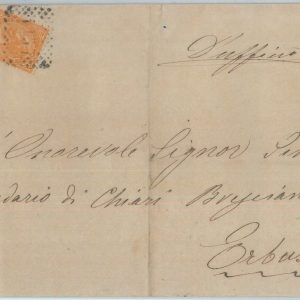 D'ufficio
Onorevole Signor
dario di Chiari Bresciano
Erbus